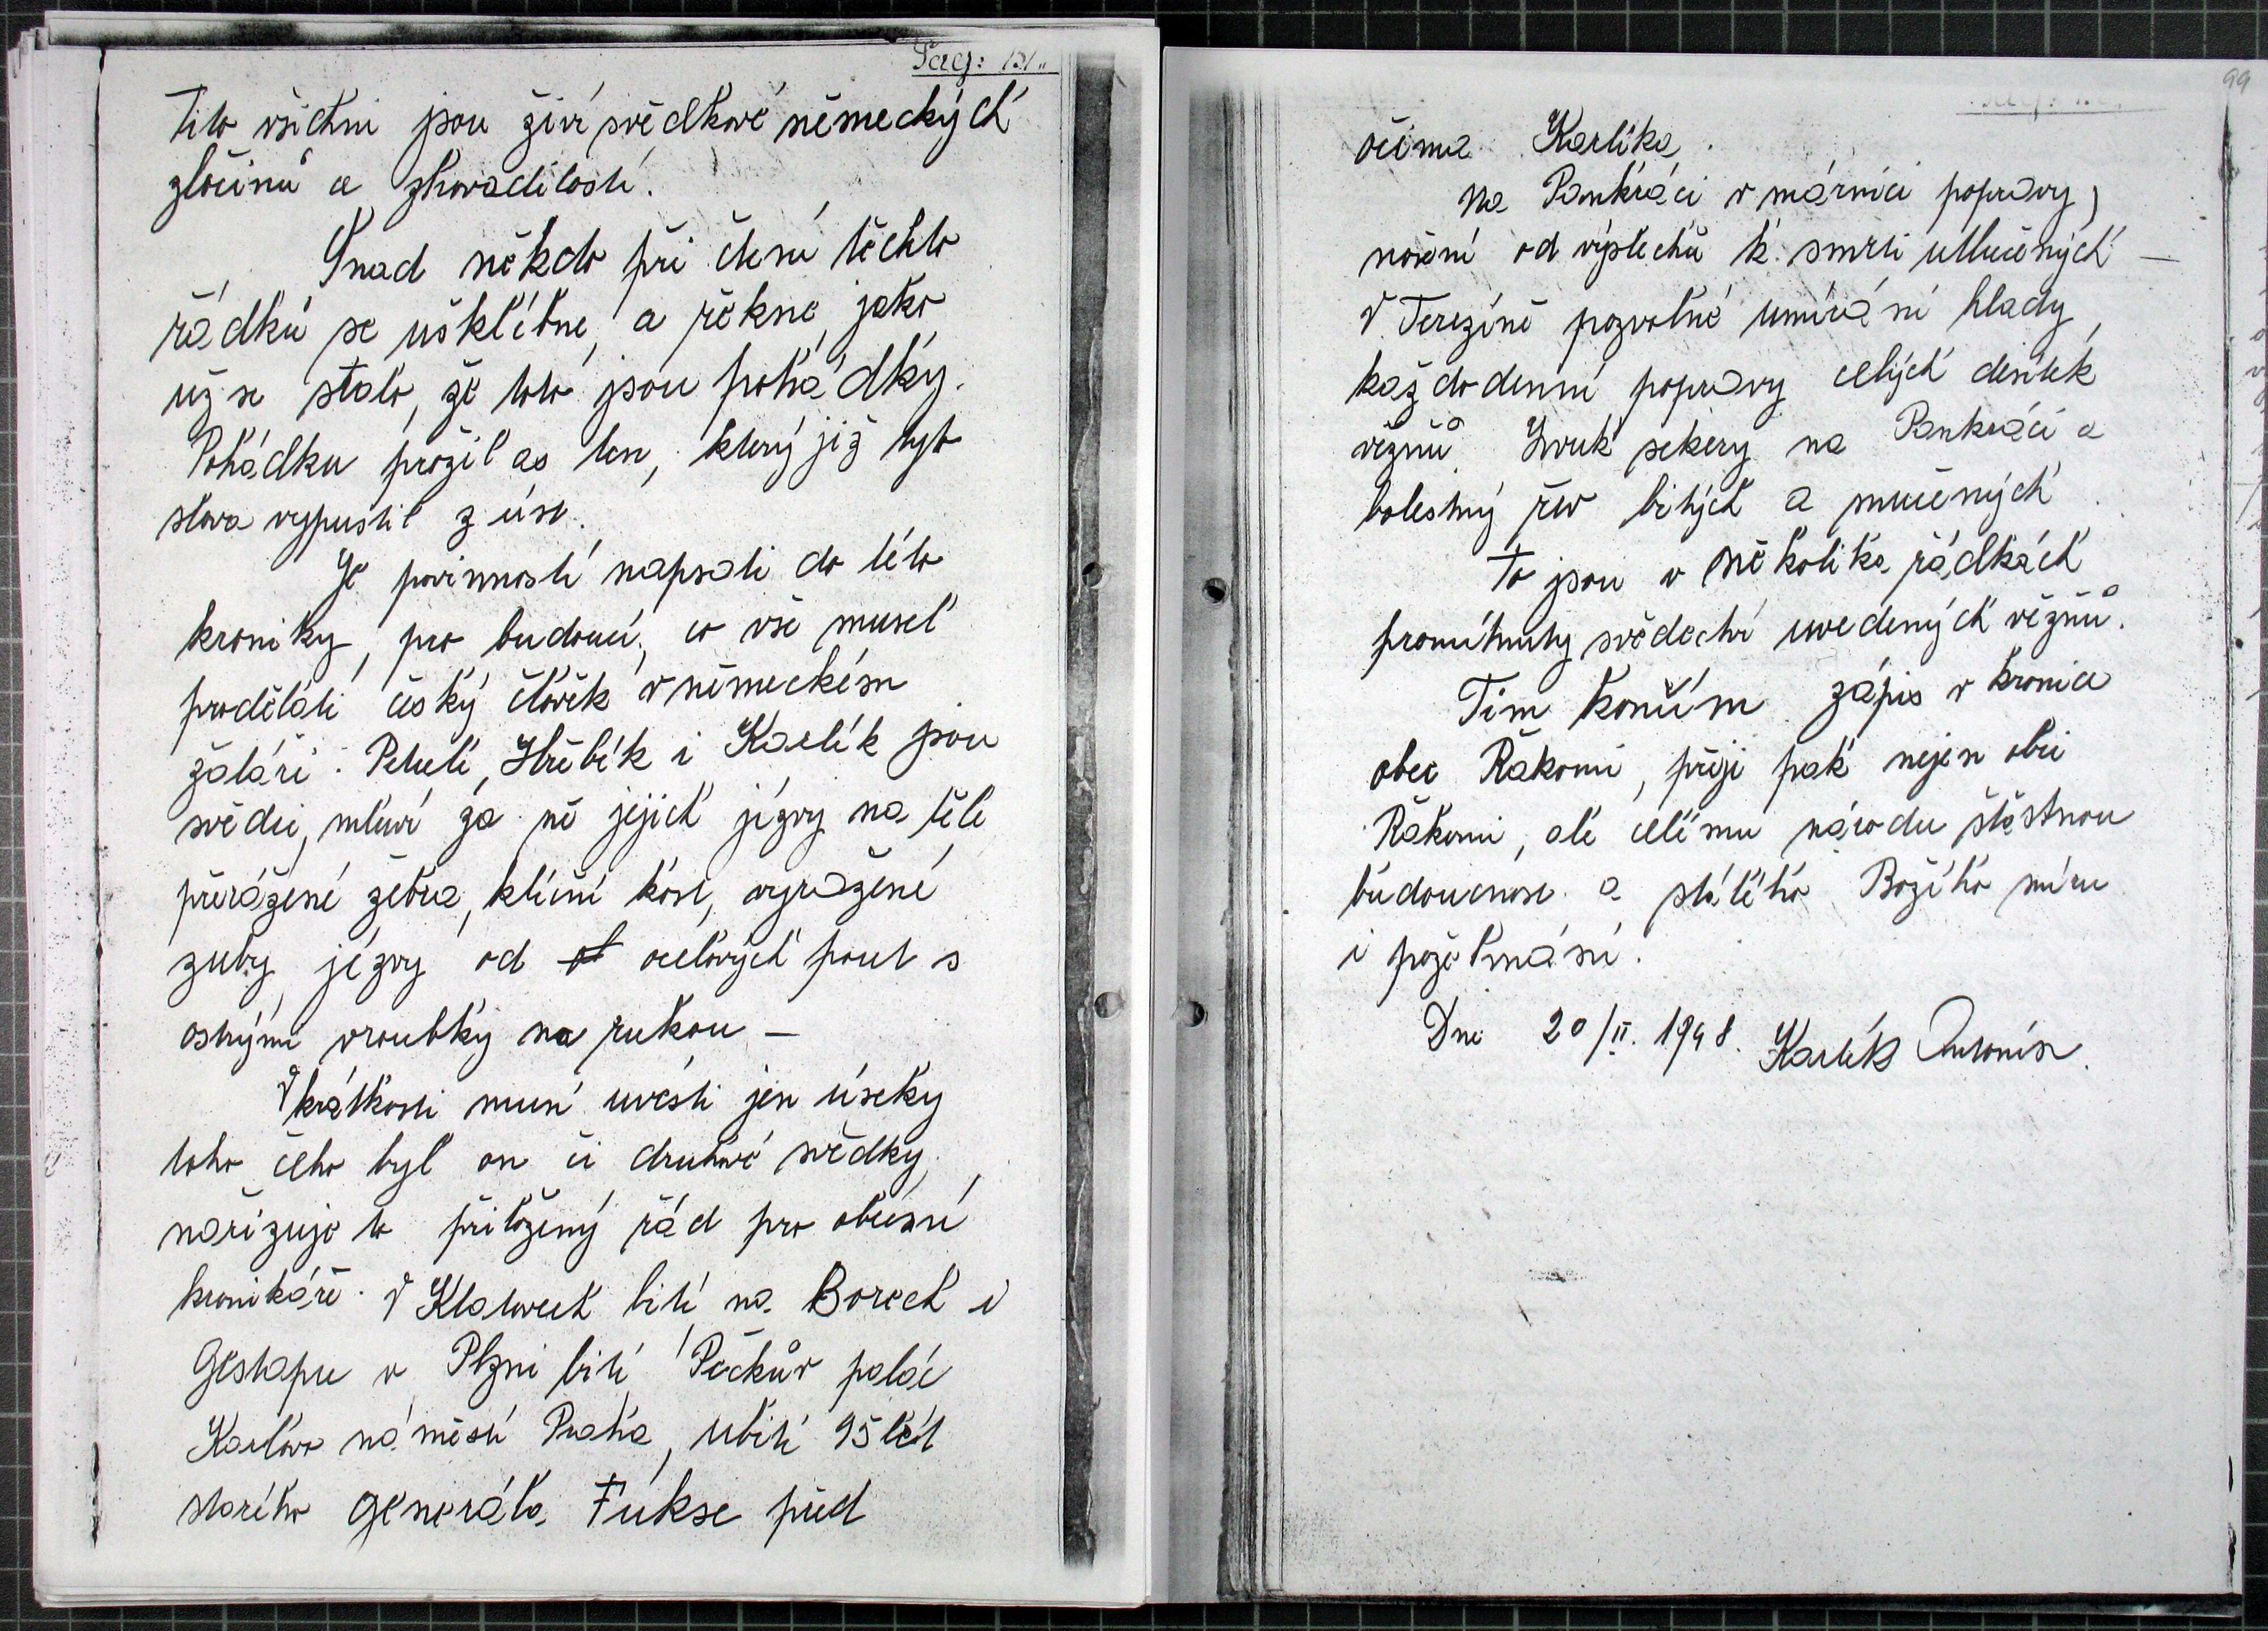 Pag: 131.
Tito všichni jsou živí svědkové německých
zločinů a zhovadilostí.
Snad někdo při čtení těchto
řádků se ušklíbne, a řekne, jako
už se stalo, že toto jsou pohádky.
Pohádku prožil as ten, který již tyto
slova vypustil z úst.
Je povinností napsati do této
kroniky, pro budoucí, co vše musel
prodělati český člověk v německém
žaláři. Petulí, Hříbek i Karlík jsou
svědci, mluví za ně jejich jizvy na těle
přeražené žebra, klíční kost, vyražené
zuby, jizvy od ocelových pout s
ostrými vroubky na rukou —
V krátkosti musí uvésti jen úseky
toho čeho byl on či druhové svědky,
nařizuje to přiložený řád pro obecní
kronikáře. V Klatovech bití na Borech i
Gestapu v Plzni bití, Pečkův palác
Karlovo náměstí Praha, ubití 95 lét
starého generála Fúkse před
99
očima Karlíka.
Na Pankráci v márnici popravy,
nošení od výslechů k smrti utlučených —
V Terezíně pozvolné umírání hlady,
každodenní popravy celých desítek
vězňů. Zvuk sekery na Pankráci a
bolestný řev bitých a mučených.
To jsou v několika řádkách
promítnuty svědectví uvedených vězňů.
Tím končím zápis v kronice
obec Řakomi, přeji pak nejen obci
Řakomi, ale celému národu šťastnou
budoucnost a stálého Božího míru
i požehnání.
Dne 20/II. 1948. Karlík Antonín.